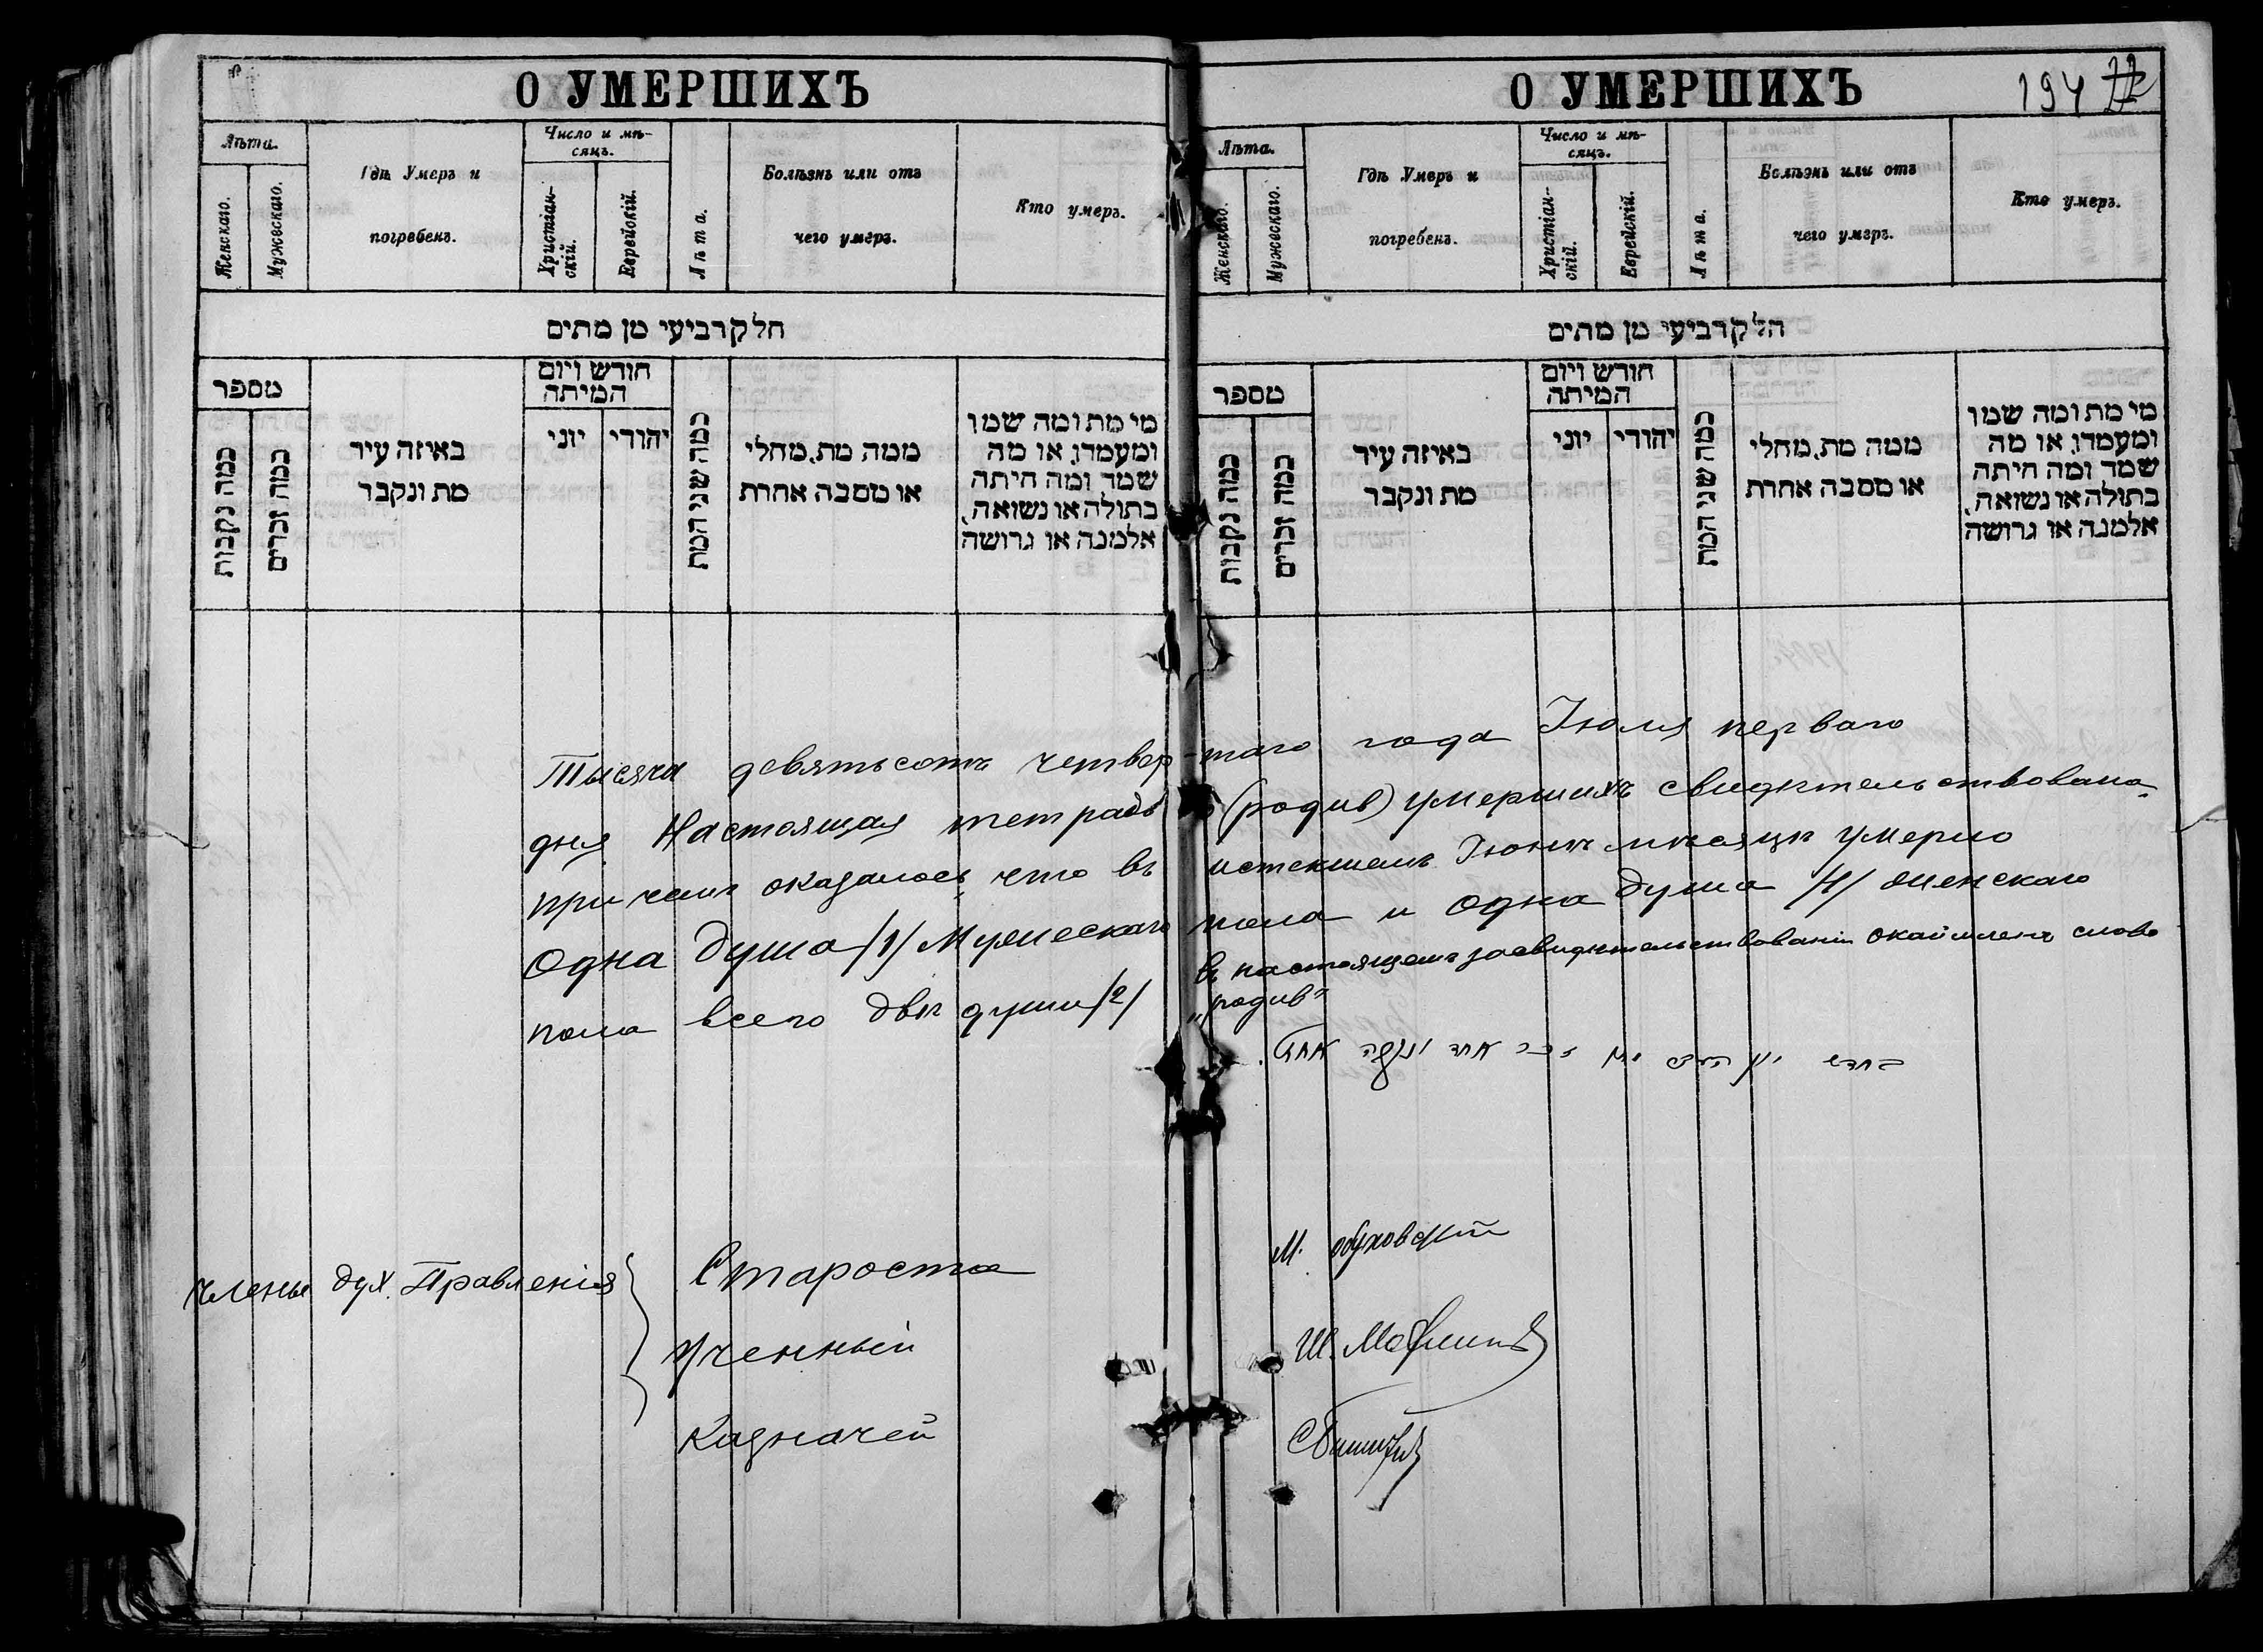 О УМЕРШИХЪ
Лѣта.
Женскаго.
Мужескаго.
Гдѣ Умеръ и
погребенъ.
Число и мѣ-
сяцъ.
Христіан-
скій.
Еврейскій.
Лѣта.
Болѣзнь или отъ
чего умеръ.
Кто умеръ.
חלק רביעי מן מתים
מספר
כמה נקבות
כמה זכרים
באיזה עיר
מת ונקבר
חודש ויום
המיתה
יוני
יהודי
כמה שני המת
ממה מת, מחלי
או מסבה אחרת
מי מת ומה שמו
ומעמדו, או מה
שמה ומה היתה
בתולה או נשואה,
אלמנה או גרושה
О УМЕРШИХЪ
194
Лѣта.
Женскаго.
Мужескаго.
Гдѣ Умеръ и
погребенъ.
Число и мѣ-
сяцъ.
Христіан-
скій.
Еврейскій.
Лѣта.
Болѣзнь или отъ
чего умеръ.
Кто умеръ.
חלק רביעי מן מתים
מספר
כמה נקבות
כמה זכרים
באיזה עיר
מת ונקבר
חודש ויום
המיתה
יוני
יהודי
כמה שני המת
ממה מת, מחלי
או מסבה אחרת
מי מת ומה שמו
ומעמדו, או מה
שמה ומה היתה
בתולה או נשואה,
אלמנה או גרושה
Тысяча девятьсотъ четвер-таго года Іюля перваго
дня Настоящая тетрадь (родив) умершихъ свидѣтельствована,
при чемъ оказалось, что въ истекшемъ Іюнѣ мѣсяцѣ умерло
Одна душа /1/ Мужескаго пола и одна душа /1/ женскаго
пола всего двѣ души /2/ Въ настоящемъ засвидѣтельствованіи окаймленъ слово
„родив“
אחד ונקבה אחת
Члены Дух. Правленія
Староста
М. Обуховскій
Ученный
Ш.
Казначей